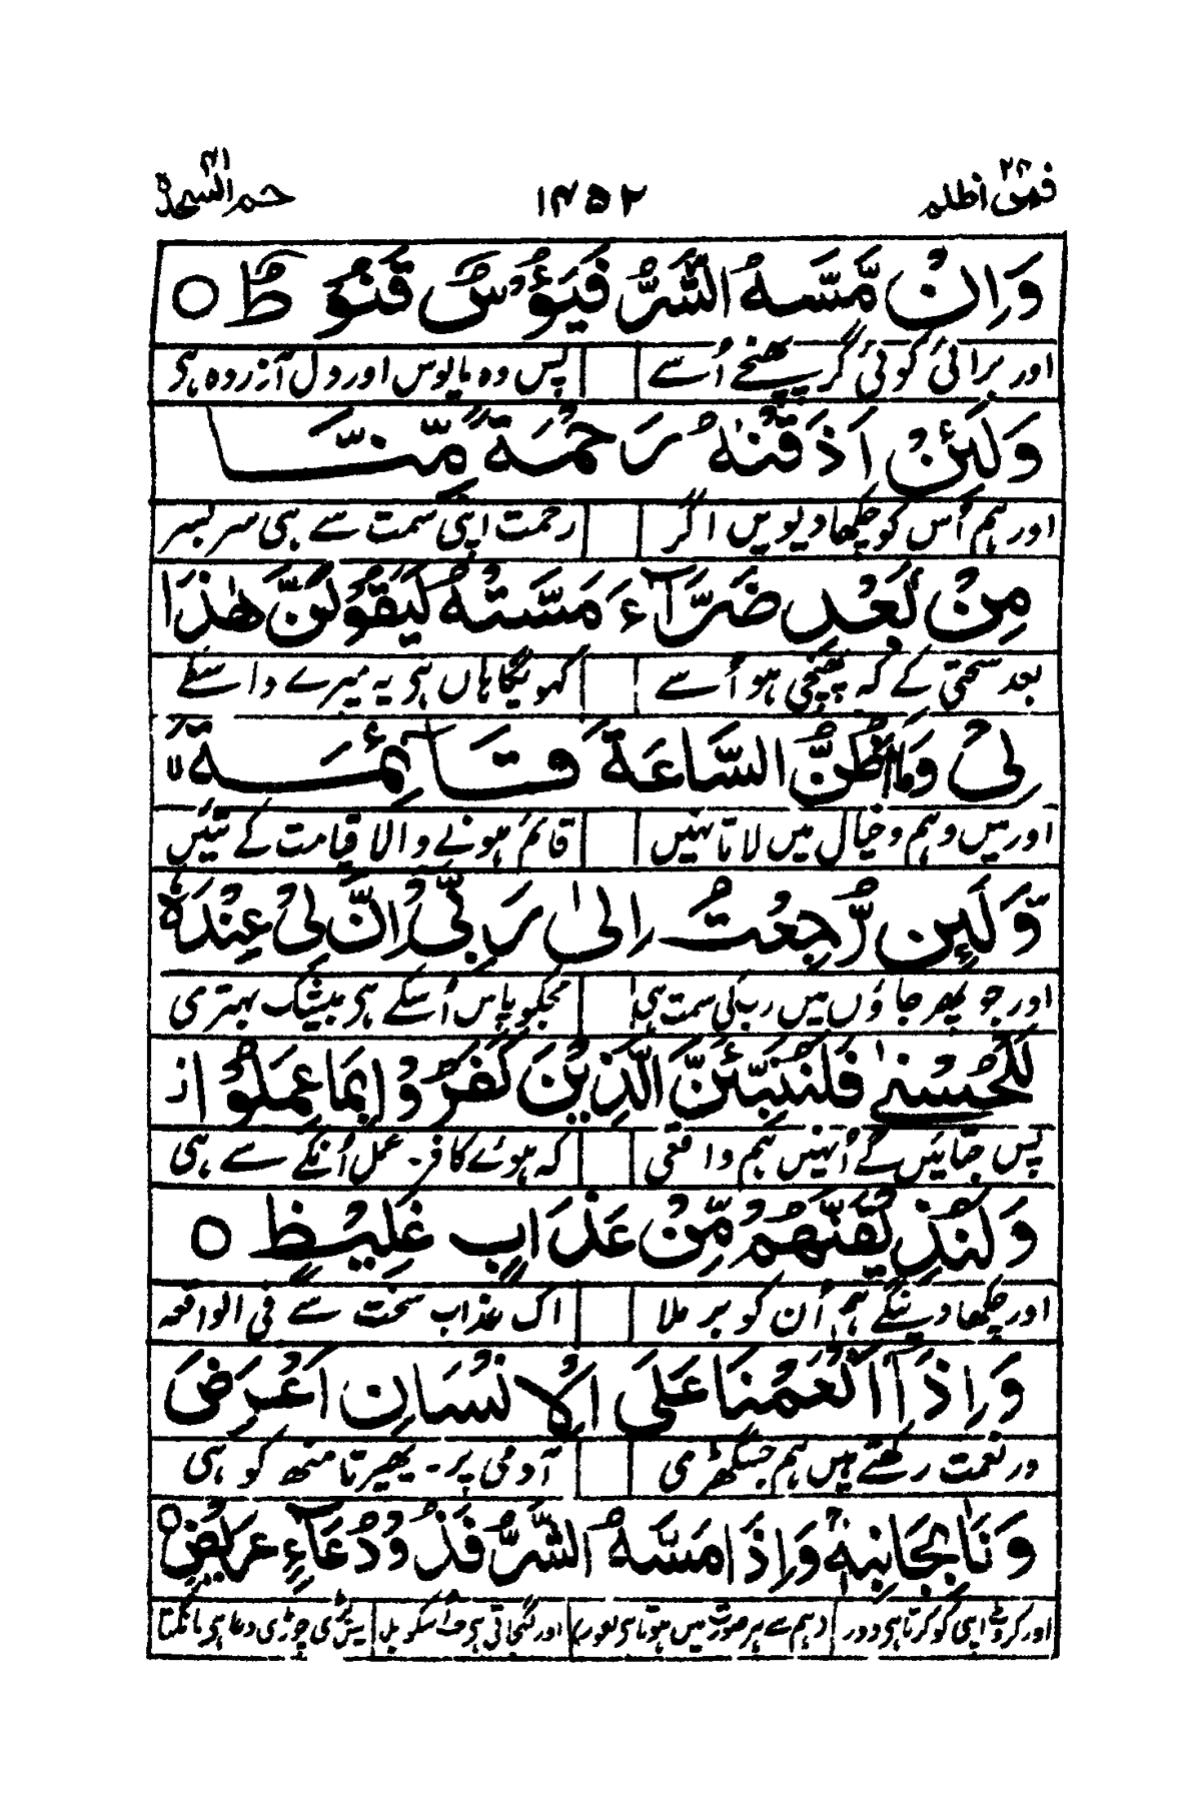 فمن اظلم ۲۴ ۱۴۵۲ حم السجدة ۴۱
وَاِنْ مَّسَّهُ الشَّرُّ فَيَؤُسٌ قَنُوْطٌ ○
اور برائی کوئی گر پہنچے اُسے پس وہ مایوس اور دل آزردہ ہی
وَلَئِنْ اَذَقْنٰهُ رَحْمَةً مِّنَّا
اور ہم اُس کو چکھا دیویں اگر رحمت اپنی سمت سے ہی سر بسر
مِنْۢ بَعْدِ ضَرَّآءَ مَسَّتْهُ لَيَقُوْلَنَّ هٰذَا
بعد سختی کے کہ پہنچی ہو اُسے کہویگا ہاں ہی یہ میرے واسطے
لِیْ وَمَا اَظُنُّ السَّاعَةَ قَآئِمَةً ۙ
اور میں وہم و خیال میں لاتا نہیں قائم ہونے والا قیامت کے تئیں
وَّلَئِنْ رُّجِعْتُ اِلٰی رَبِّیْ اِنَّ لِیْ عِنْدَهٗ
اور جو پھر جاؤں میں رب کی سمت ہی مجکو پاس اُسکے ہی بیشک بہتری
لَلْحُسْنٰی فَلَنُنَبِّئَنَّ الَّذِيْنَ كَفَرُوْا بِمَا عَمِلُوْا ز
پس جتائیں گے اُنہیں ہم واقعی کہ ہوئے کافر۔ عمل اُنکے سے ہی
وَلَنُذِيْقَنَّهُمْ مِّنْ عَذَابٍ غَلِيْظٍ ○
اور چکھا دینگے ہم اُن کو بر ملا اک عذاب سخت سے فی الواقعہ
وَاِذَآ اَنْعَمْنَا عَلَی الْاِنْسَانِ اَعْرَضَ
ور نعمت رکھتے ہیں ہم جس گھڑی آدمی پر۔ پھیرتا منھ کو ہی
وَنَاٰ بِجَانِبِهٖ وَاِذَا مَسَّهُ الشَّرُّ فَذُوْ دُعَآءٍ عَرِيْضٍ ○
اور کروٹ اپنی کو کرتا ہی دور وہم سے ہر صورت میں ہوتا ہی اور لگجاتی ہی اُسکو چوڑی دعا ہی مانگتا